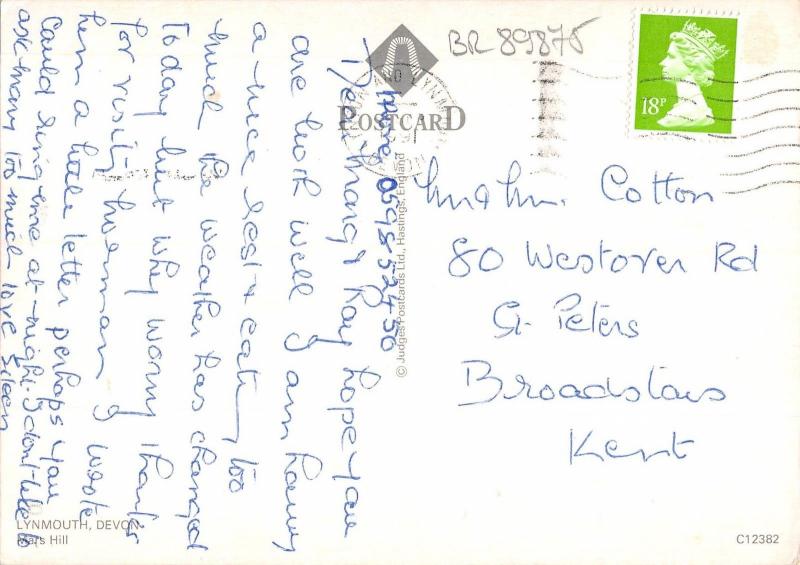 BR 89875
18P
POSTCARD
Phone 0598 52450
Dear Mary & Ray hope you
are both well I am having
a nice rest & eating too
much the weather has changed
Today but why worry thanks
for visiting Norman I wrote
him a little letter perhaps you
Could ring me at night I dont like to
ask many too much love Eileen
© Judges Postcards Ltd., Hastings, England
Cotton
80 Westover Rd
St Peters
Broadstairs
Kent
LYNMOUTH, DEVON
Mars Hill
C12382